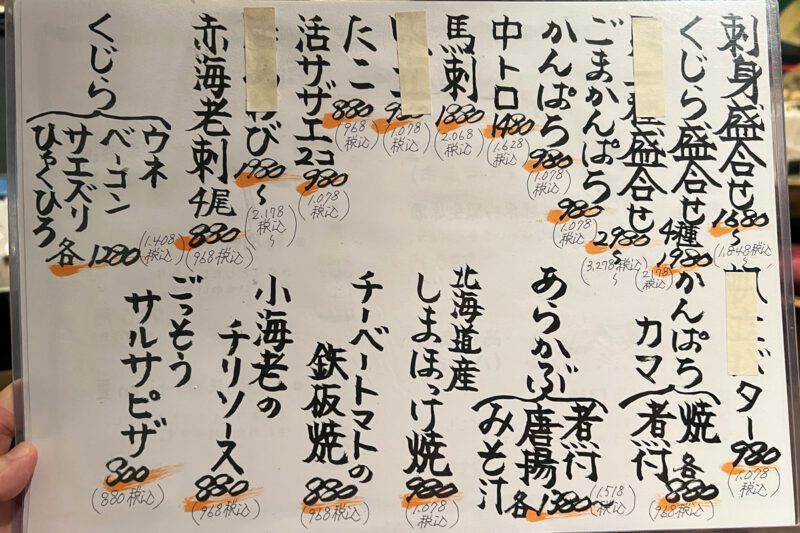 刺身盛合せ 1680〜
(1,848税込〜)
くじら盛合せ 4種 1980
(2,178税込)
盛合せ 2980〜
(3,278税込〜)
ごまかんぱち 980
(1,078税込)
かんぱち 980
(1,078税込)
中トロ 1480
(1,628税込)
馬刺 1880
(2,068税込)
(1,078税込)
たこ 880
(968税込)
活サザエ 2コ 980
(1,078税込)
わび 1980〜
(2,178税込〜)
赤海老刺 4尾 880
(968税込)
くじら
ウネ
ベーコン
サエズリ
ひゃくひろ
各 1280
(1,408税込)
バター 980
(1,078税込)
かんぱちカマ
焼
煮付
各 880
(968税込)
あらかぶ
煮付
唐揚
みそ汁
各 1380
(1,518税込)
北海道産
しまほっけ焼 980
(1,078税込)
チーベートマトの
鉄板焼 880
(968税込)
小海老の
チリソース 880
(968税込)
ごっそう
サルサピザ 800
(880税込)